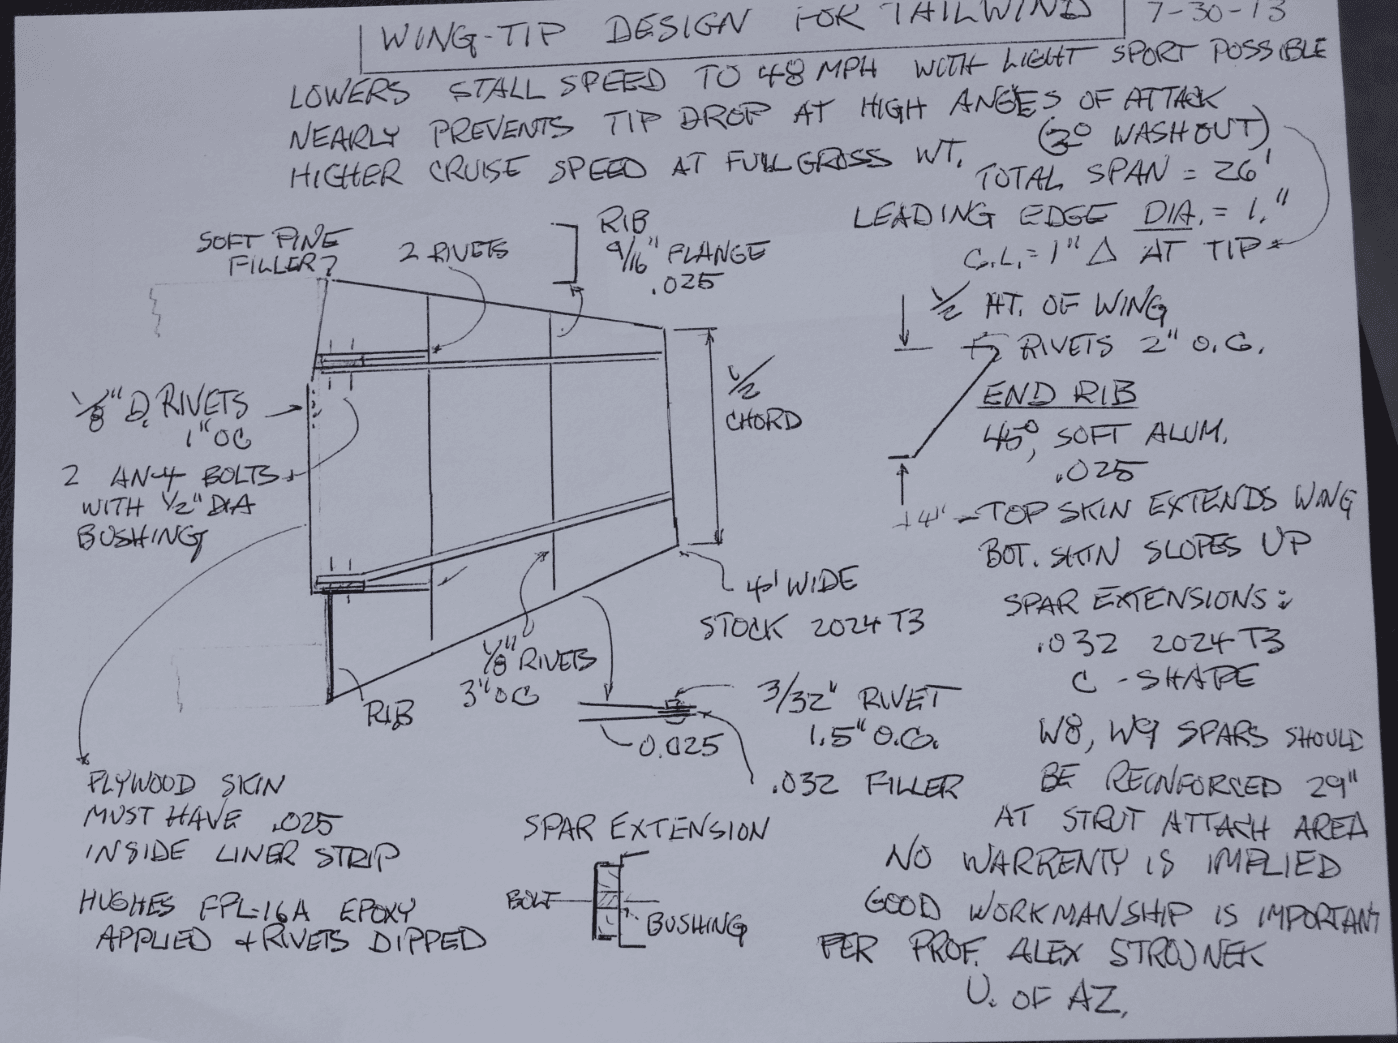 WING-TIP DESIGN FOR TAILWIND
7-30-13
LOWERS STALL SPEED TO 48 MPH WITH LIGHT SPORT POSSIBLE
NEARLY PREVENTS TIP DROP AT HIGH ANGES OF ATTACK
HIGHER CRUISE SPEED AT FULL GROSS WT.
(3° WASHOUT)
TOTAL SPAN = 26'
LEADING EDGE DIA. = 1."
C.L. = 1" △ AT TIP
SOFT PINE
FILLER
2 RIVETS
RIB
9/16" FLANGE
.025
1/2 HT. OF WING
RIVETS 2" O.C.
END RIB
45°, SOFT ALUM.
.025
1/2
CHORD
1/8" D. RIVETS
1" OC
2 AN-4 BOLTS
WITH 1/2" DIA
BUSHING
4" - TOP SKIN EXTENDS WING
BOT. SKIN SLOPES UP
4' WIDE
STOCK 2024 T3
SPAR EXTENSIONS:
.032 2024 T3
C - SHAPE
1/8" RIVETS
3" OC
RIB
3/32" RIVET
1.5" O.C.
0.025
.032 FILLER
W8, W9 SPARS SHOULD
BE REINFORCED 29"
AT STRUT ATTACH AREA
PLYWOOD SKIN
MUST HAVE .025
INSIDE LINER STRIP
HUGHES FPL-16A EPOXY
APPLIED & RIVETS DIPPED
SPAR EXTENSION
BOLT
BUSHING
NO WARRENTY IS IMPLIED
GOOD WORKMANSHIP IS IMPORTANT
PER PROF. ALEX STROJNEK
U. OF AZ.